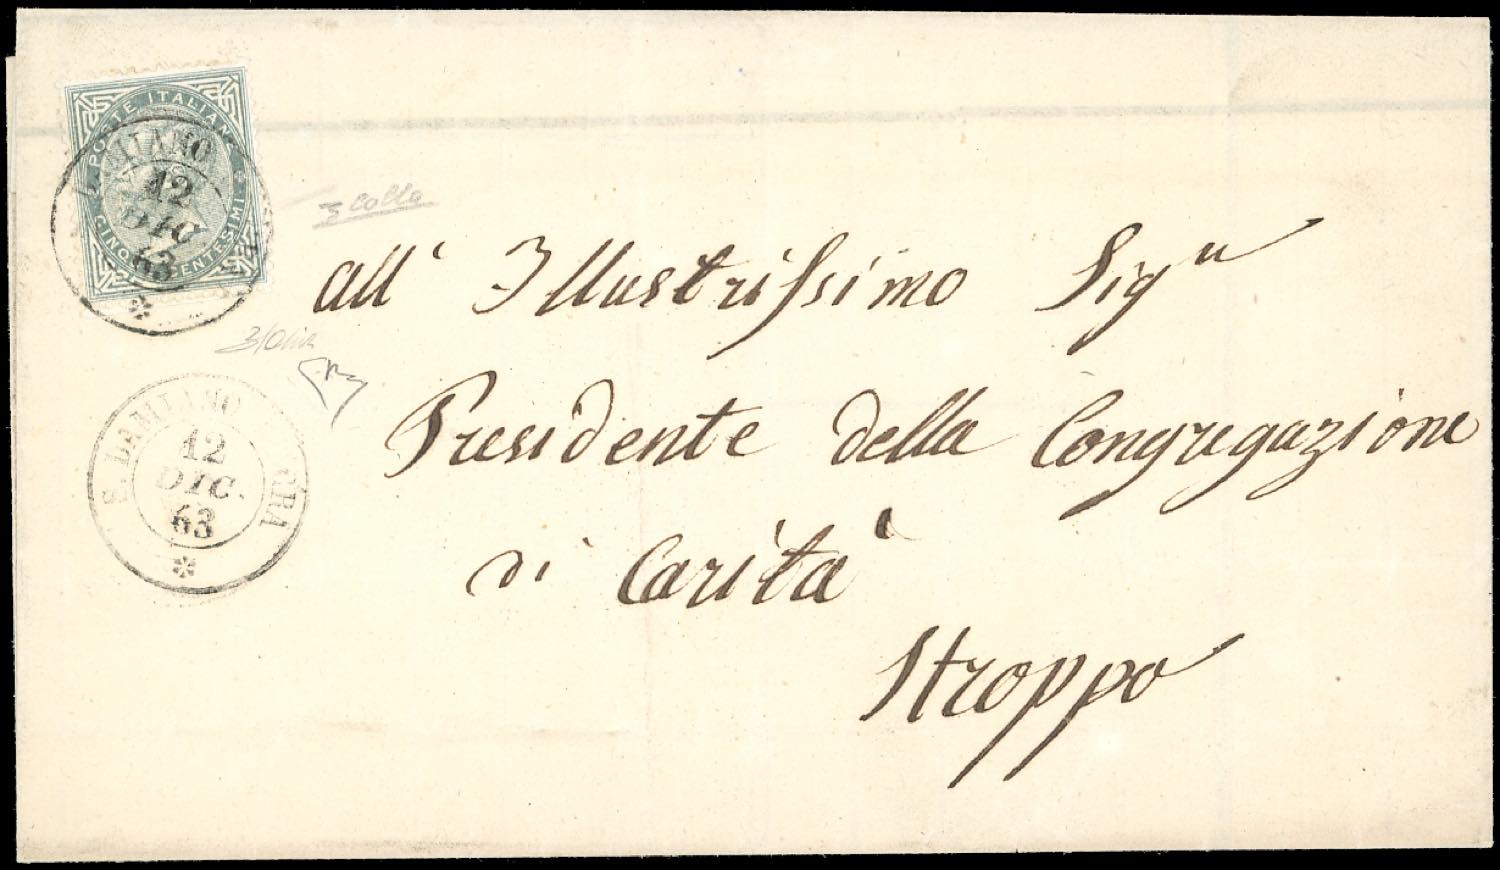 POSTE ITALIANE
CINQUE CENTESIMI
12
DIC
63
E Colla
all' Illustrissimo Sigr
Presidente della Congregazione
di Carità
Stroppo
S. DAMIANO
12
DIC.
63